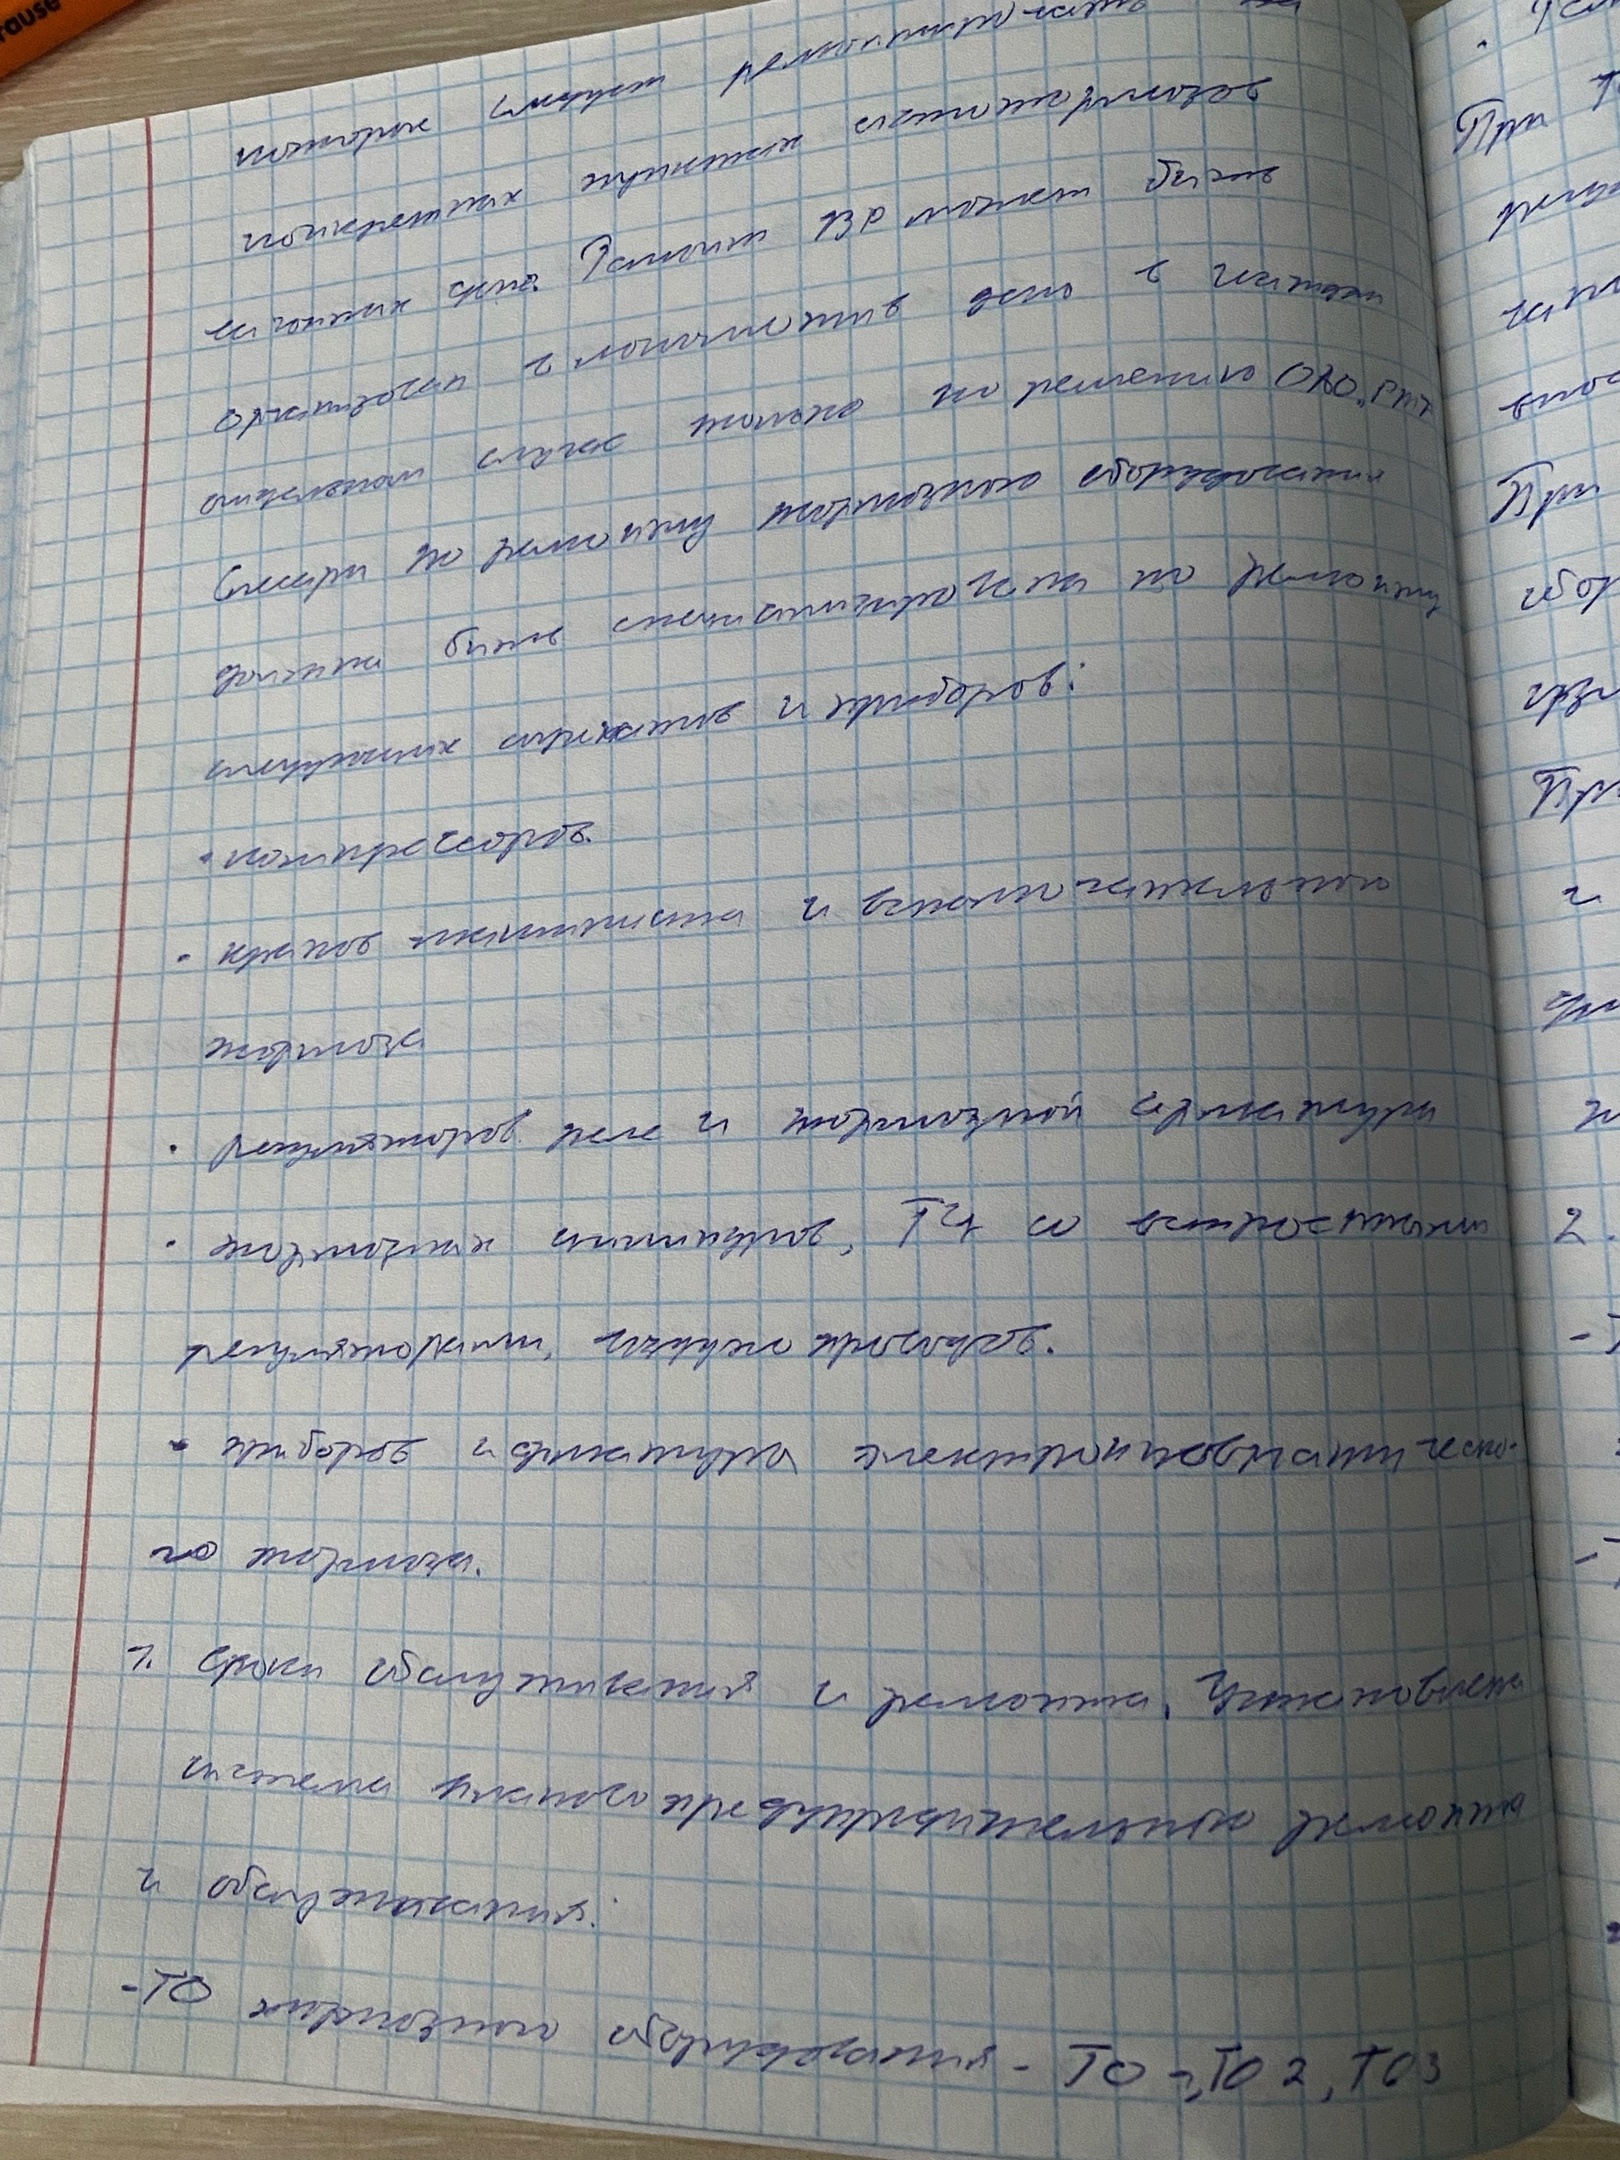 которые следует ремонтировать на
конкретных пунктах автотормозов
вагонных депо. Ремонт ВР может быть
организован в локомотив депо в каждом
отдельном случае только по решению ОАО „РЖД
Слесари по ремонту тормозного оборудования
должны быть специализированы по ремонту
следующих агрегатов и приборов:
• компрессоров.
• кранов машиниста и вспомогательного
тормоза
• регуляторов реле и тормозной арматуры
• тормозных цилиндров, ТЦ со встроенными
регуляторами, воздухопроводов.
• приборов и арматуры электропневматическо-
го тормоза.
1. Сроки обслуживания и ремонта. Установлена
система планово предупредительного ремонта
и обслуживания:
-ТО тормозного оборудования - ТО-1, ТО2, ТО3
При
При
2.